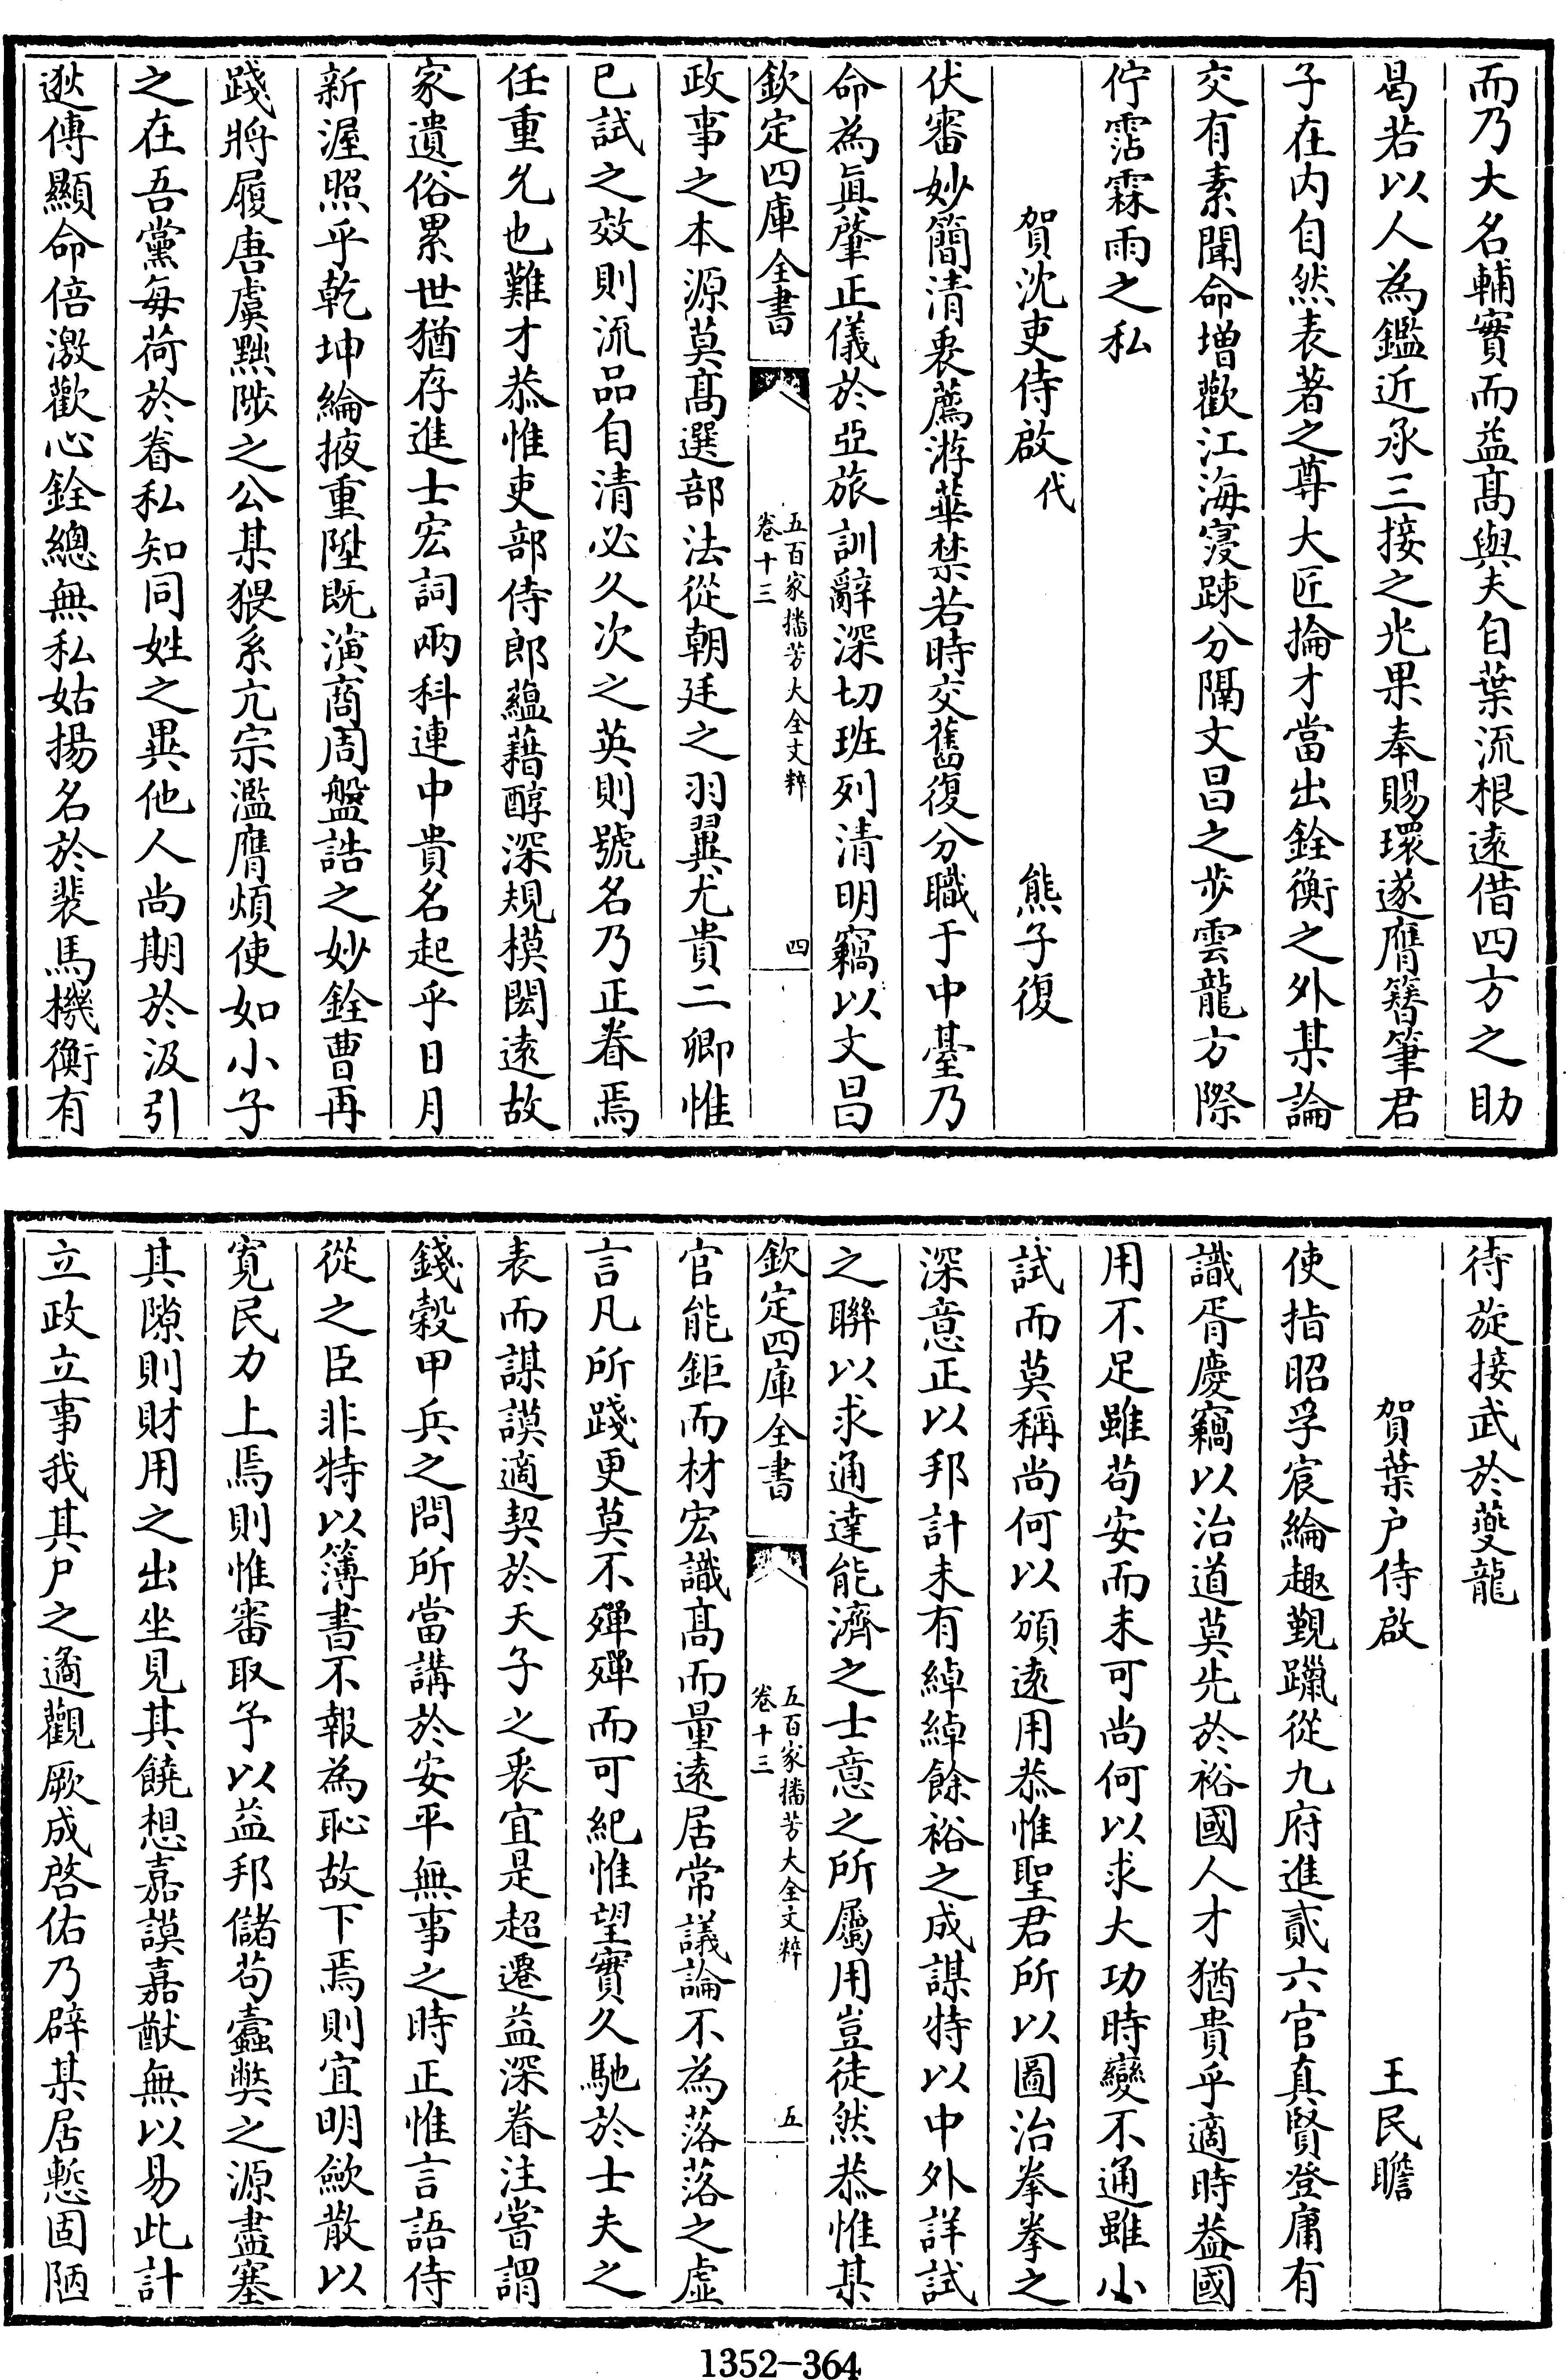 而乃大名輔實而益髙與夫自葉流根遠借四方之助
曷若以人為鑑近承三接之光果奉賜環遂膺簪筆君
子在内自然表著之尊大匠掄才當出銓衡之外某論
交有素聞命増歡江海寖踈分隔文昌之步雲龍方際
佇霑霖雨之私
賀沈吏侍啟代　熊子復
伏審妙簡清衷薦游華禁若時交舊復分職于中臺乃
命為眞肇正儀於亞旅訓辭深切班列清明竊以文昌
欽定四庫全書　五百家播芳大全文粹　卷十三　四
政事之本源莫髙選部法從朝廷之羽翼尤貴二卿惟
已試之效則流品自清必久次之英則號名乃正眷焉
任重允也難才恭惟吏部侍郎藴藉醇深規模閎遠故
家遺俗累世猶存進士宏詞兩科連中貴名起乎日月
新渥照乎乾坤綸掖重陞既演商周盤誥之妙銓曹再
踐將履唐虞黜陟之公某猥系亢宗濫膺煩使如小子
之在吾黨每荷於眷私知同姓之異他人尚期於汲引
逖傳顯命倍激歡心銓總無私姑揚名於裴馬機衡有
待旋接武於夔龍
賀葉户侍啟　王民瞻
使指昭孚宸綸趣覲躐從九府進貳六官真賢登庸有
識胥慶竊以治道莫先於裕國人才猶貴乎適時葢國
用不足雖苟安而未可尚何以求大功時變不通雖小
試而莫稱尚何以頒遠用恭惟聖君所以圖治拳拳之
深意正以邦計未有綽綽餘裕之成謀特以中外詳試
之聯以求通達能濟之士意之所屬用豈徒然恭惟某
欽定四庫全書　五百家播芳大全文粹　卷十三　五
官能鉅而材宏識髙而量遠居常議論不為落落之虚
言凡所踐更莫不殫殫而可紀惟望實久馳於士夫之
表而謀謨適契於天子之衷宜是超遷益深眷注嘗謂
錢榖甲兵之問所當講於安平無事之時正惟言語侍
從之臣非特以簿書不報為恥故下焉則宜明斂散以
寛民力上焉則惟審取予以益邦儲苟蠹弊之源盡塞
其隙則財用之出坐見其饒想嘉謨嘉猷無以易此計
立政立事我其戶之遹觀厥成啓佑乃辟某居慙固陋
1352-364